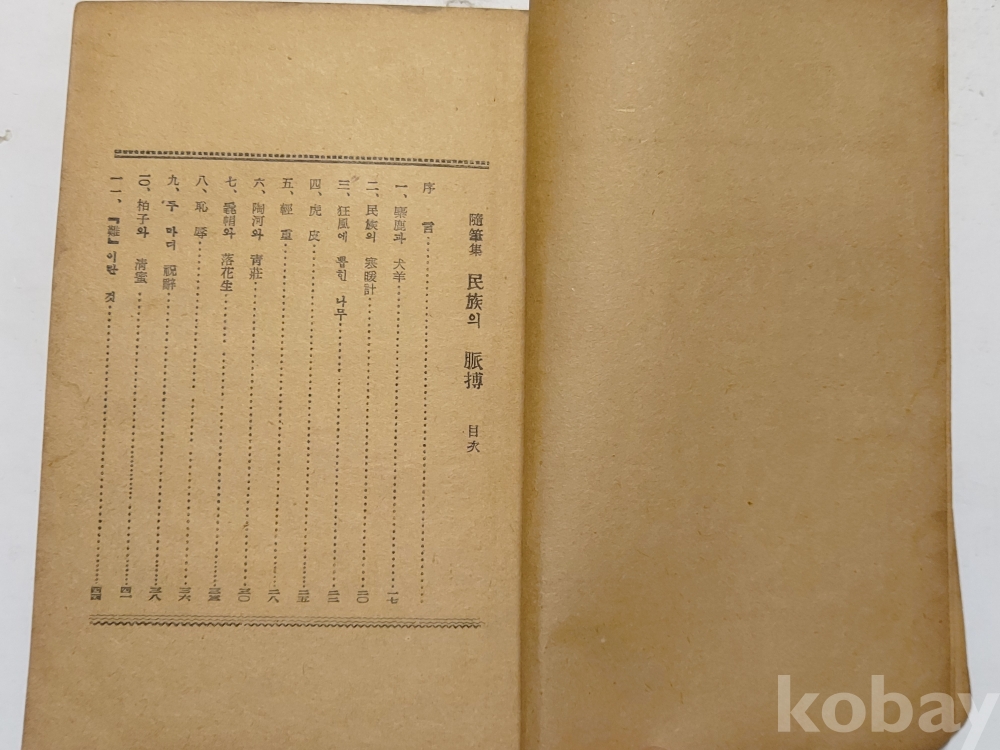 隨筆集 民族의 脈搏 目次
序言
一、麋鹿과 犬羊 一七
二、民族의 寒暖計 二〇
三、狂風에 뽑힌 나무 二二
四、虎皮 二五
五、輕重 二八
六、陶河와 青莊 三〇
七、氈帽와 落花生 三三
八、恥辱 三六
九、두 마디 祝辭 三八
一〇、柏子와 清蜜 四一
一一、『雞』이란 것 四四
kobay